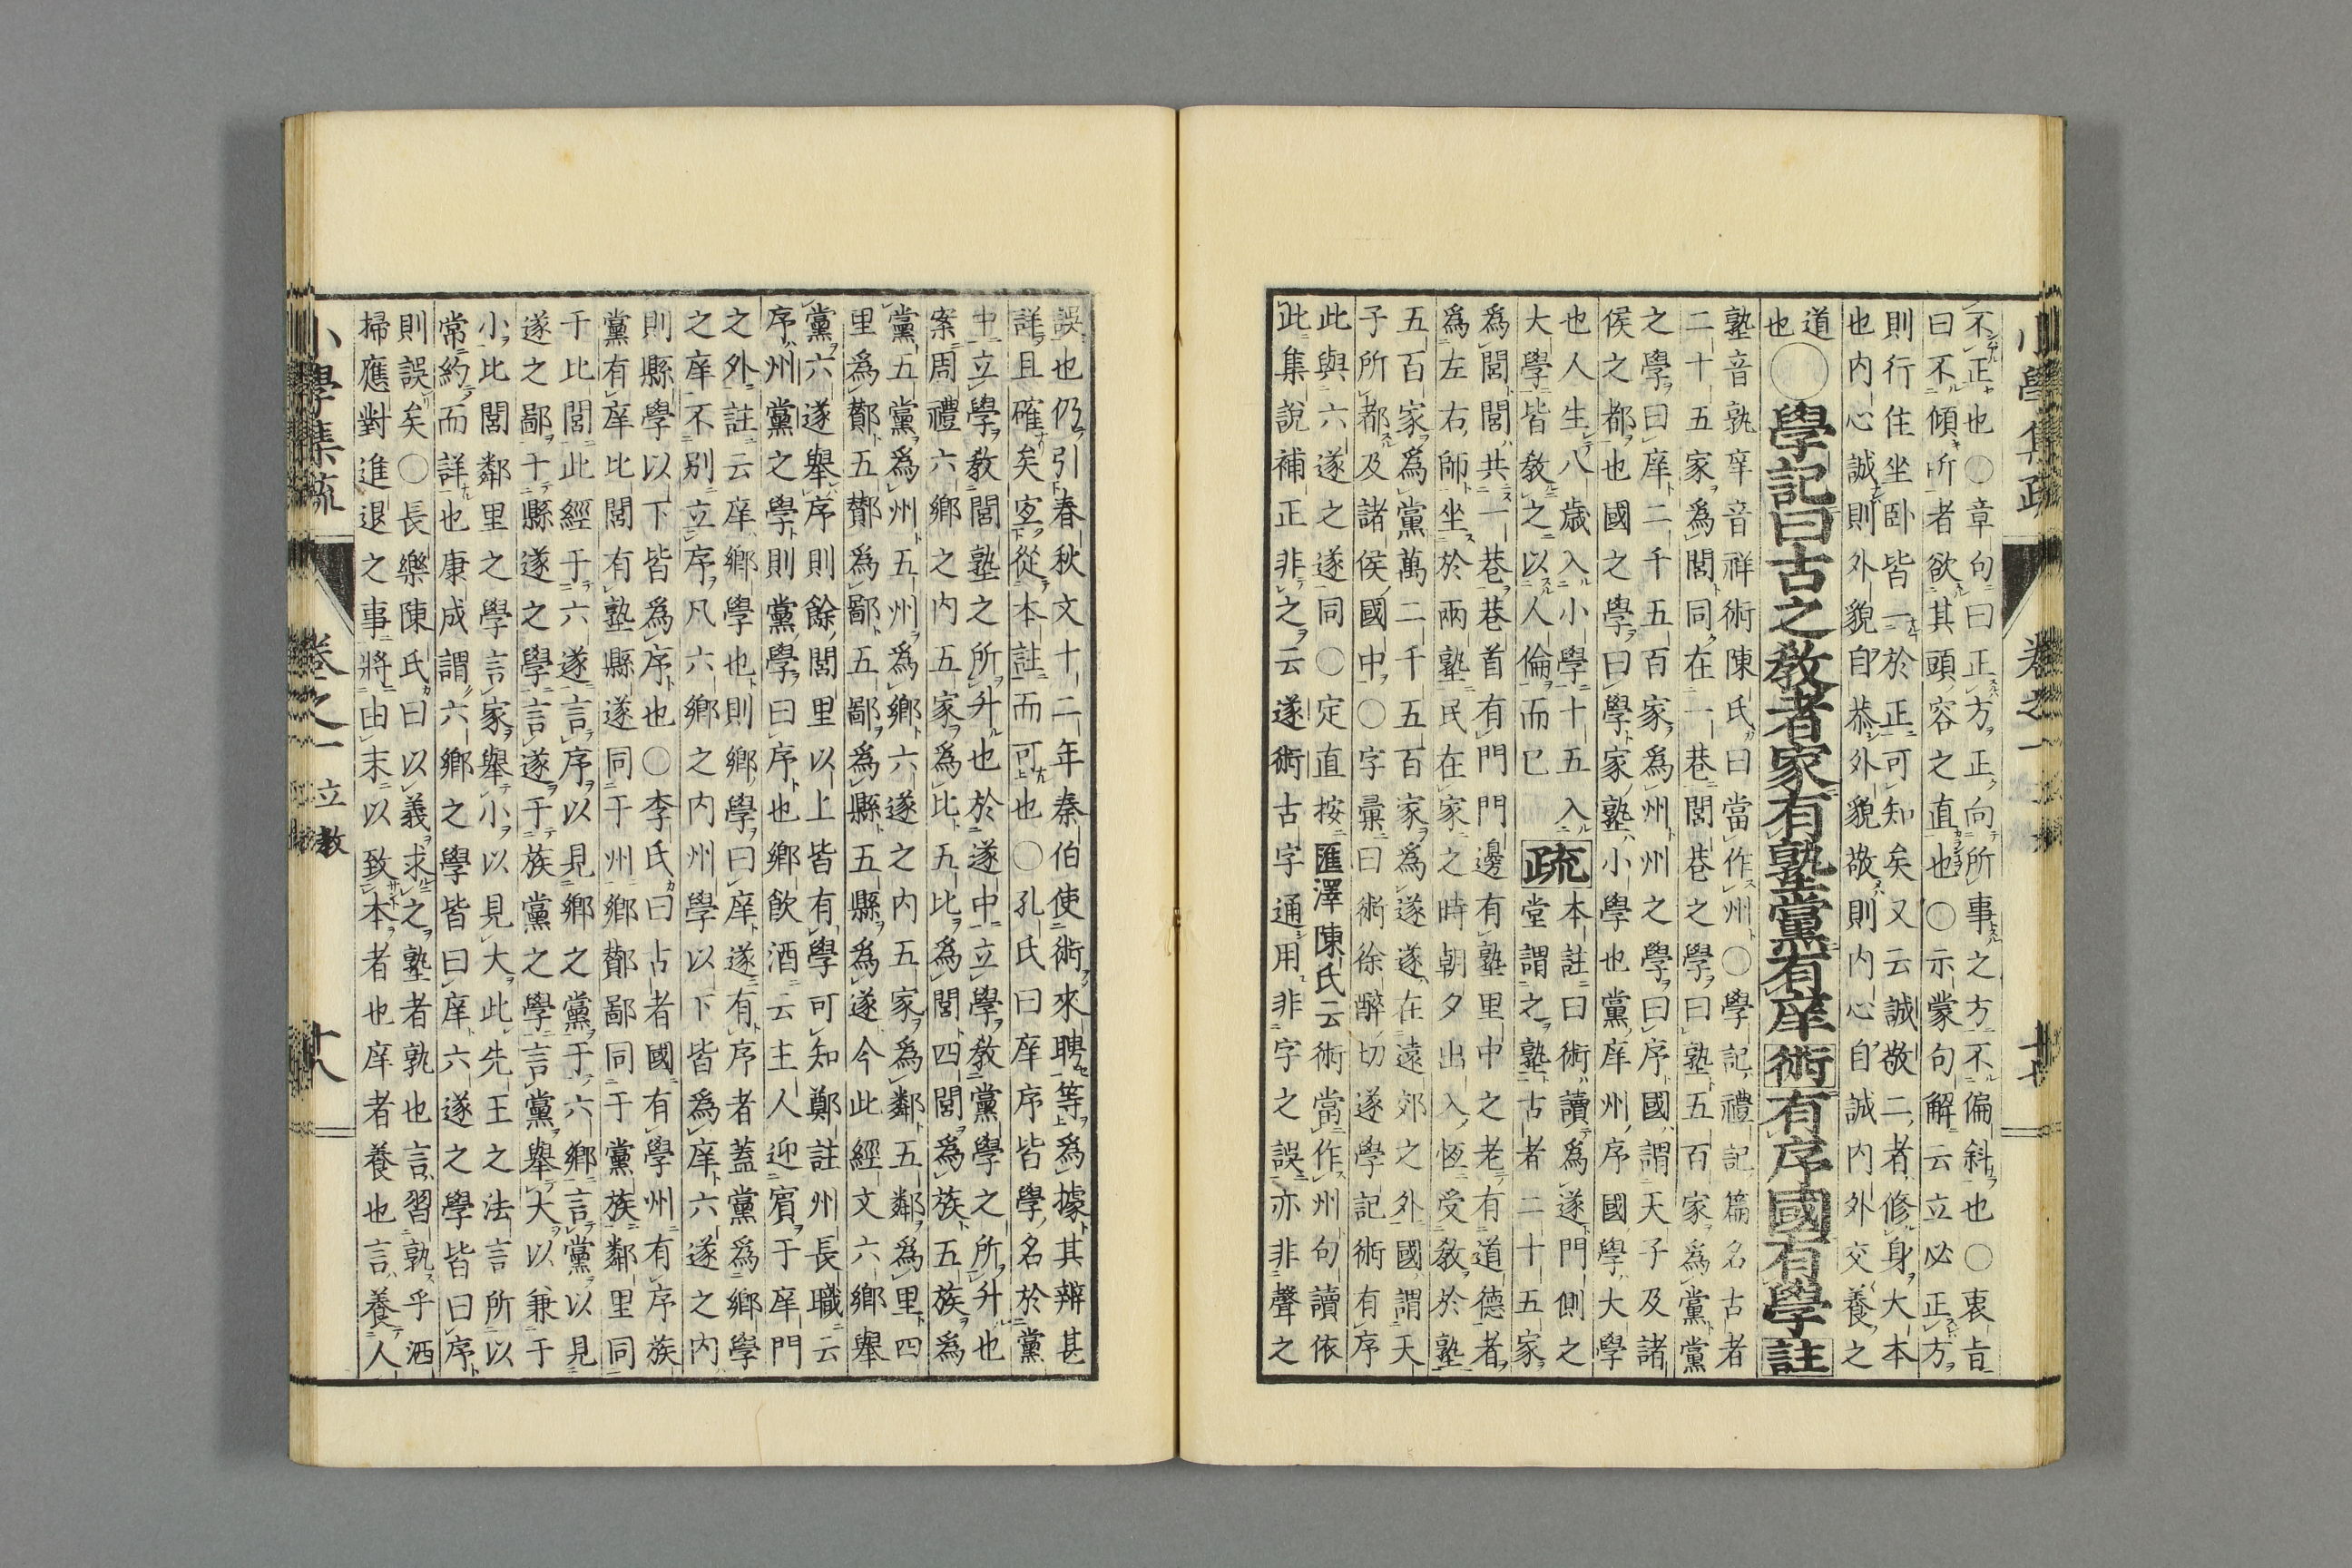 不正也○章句曰正方正向所事之方不偏斜也○衷旨
曰不傾所者欲其頭容之直也○示蒙句解云立必正方
則行住坐卧皆一於正可知矣又云誠敬二者修身大本
也内心誠則外貌自恭外貌敬則内心自誠内外交養之
道
也
○學記曰古之教者家有塾黨有庠術有序國有學註
塾音孰庠音祥術陳氏曰當作州○學記禮記篇名古者
二十五家爲閭同在一巷閭巷之學曰塾五百家爲黨黨
之學曰庠二千五百家爲州州之學曰序國謂天子及諸
侯之都也國之學曰學家塾小學也黨庠州序國學大學
也人生八歳入小學十五入
大學皆教之以人倫而已
疏
本註曰術讀爲遂門側之
堂謂之塾古者二十五家
爲閭閭共一巷巷首有門門邊有塾里中之老有道德者
爲左右師坐於兩塾民在家之時朝夕出入恆受教於塾
五百家爲黨萬二千五百家爲遂遂在遠郊之外國謂天
子所都及諸侯國中○字彙曰術徐醉切遂學記術有序
此與六遂之遂同○定直按匯澤陳氏云術當作州句讀依
此集說補正非之云遂術古字通用非字之誤亦非聲之
小學集疏 卷之一 十七
誤也仍引春秋文十二年秦伯使術來聘等爲據其辨甚
詳且確矣寔從本註而可也○孔氏曰庠序皆學名於黨
中立學教閭塾之所升也於遂中立學教黨學之所升也
案周禮六鄉之内五家爲比五比爲閭四閭爲族五族爲
黨五黨爲州五州爲鄉六遂之内五家爲鄰五鄰爲里四
里爲酇五酇爲鄙五鄙爲縣五縣爲遂今此經文六鄉舉
黨六遂舉序則餘閭里以上皆有學可知鄭註州長職云
序州黨之學則黨學曰序也鄉飲酒云主人迎賓于庠門
之外註云庠鄉學也則鄉學曰庠遂有序者蓋黨爲鄉學
之庠不別立序凡六鄉之内州學以下皆爲庠六遂之内
則縣學以下皆爲序也○李氏曰古者國有學州有序族
黨有庠比閭有塾縣遂同于州鄉酇鄙同于黨族鄰里同
于比閭此經于六遂言序以見鄉之黨于六鄉言黨以見
遂之鄙十縣遂之學言遂于族黨之學言黨舉大以兼于
小比閭鄰里之學言家舉小以見大此先王之法言所以
常約而詳也康成謂六鄉之學皆曰庠六遂之學皆曰序
則誤矣○長樂陳氏曰以義求之塾者孰也言習孰乎洒
掃應對進退之事將由末以致本者也庠者養也言養人
小學集疏 卷之一 立教 十八